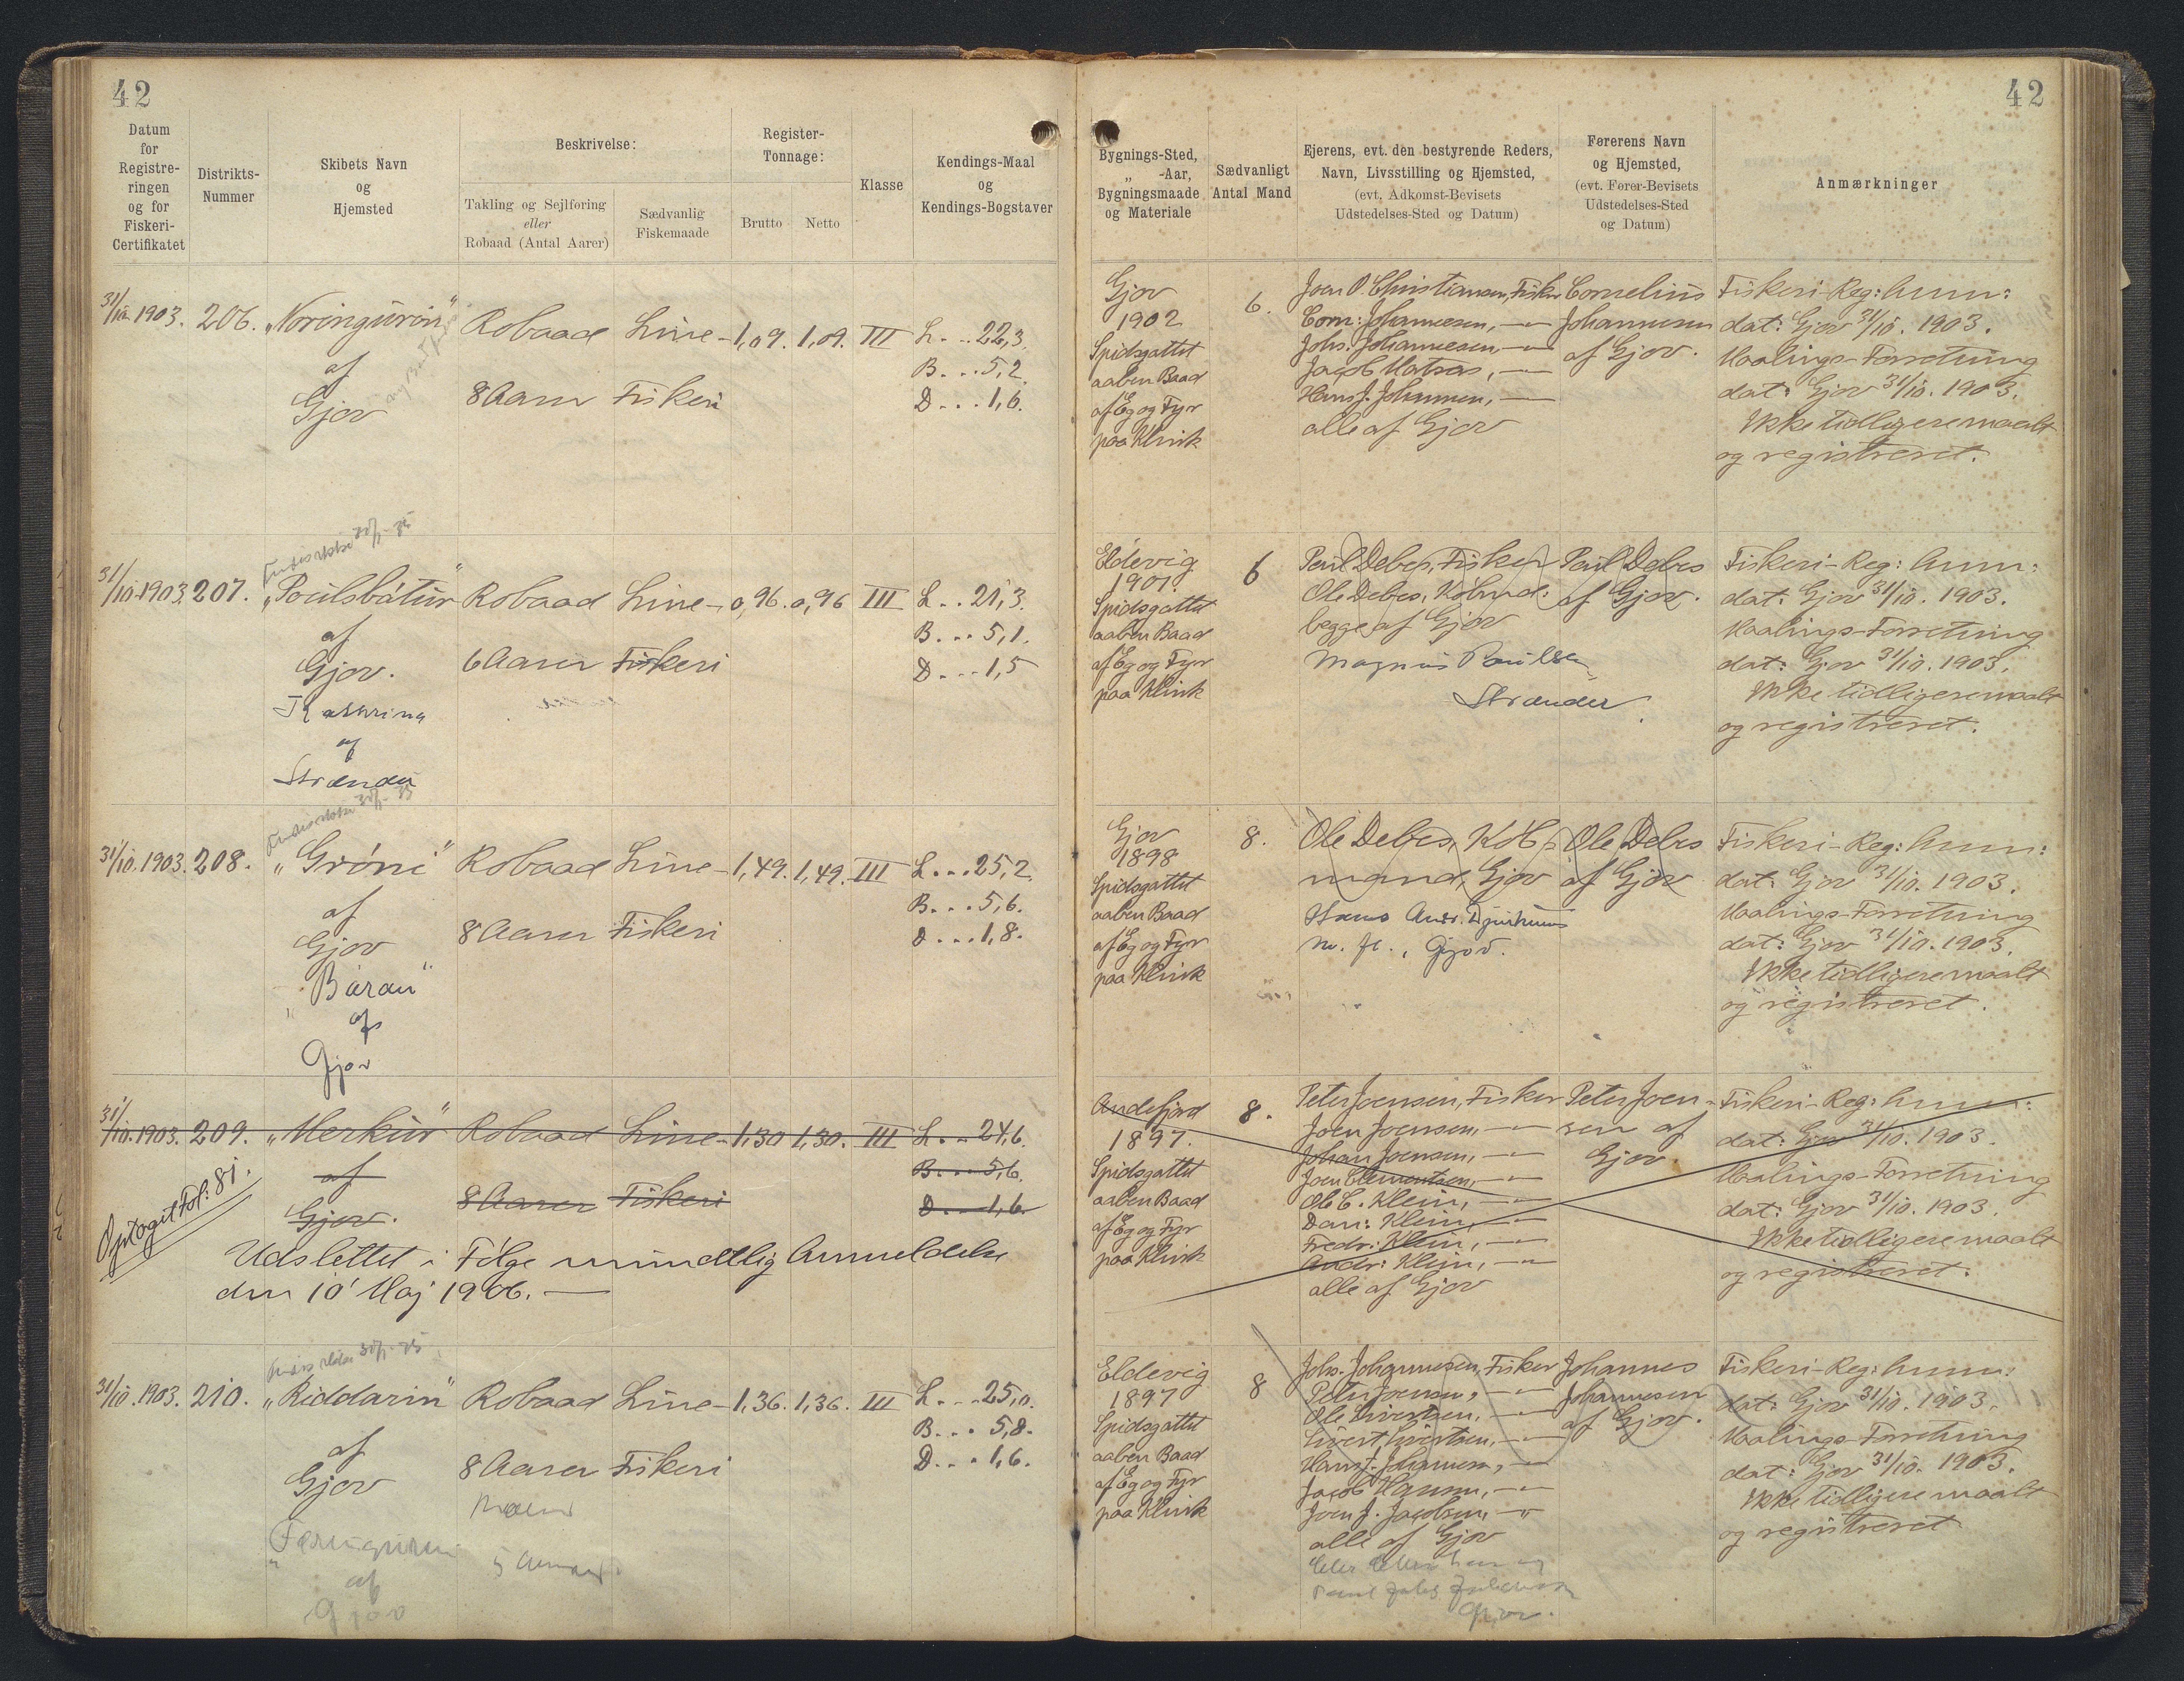 42
Datum
for
Registre-
ringen
og for
Fiskeri-
Certifikatet
Distrikts-
Nummer
Skibets Navn
og
Hjemsted
Beskrivelse:
Takling og Sejlføring
eller
Robaad (Antal Aarer)
Sædvanlig
Fiskemaade
Register-
Tonnage:
Brutto Netto
Klasse
Kendings-Maal
og
Kendings-Bogstaver
31/10.1903. 206. „Noringurin" Robaad Line- 1,09. 1,09. III L...22,3.
af B...5,2.
Gjov 8 Aarer Fiskeri D...1,6.
Findes ikke 30/1-35
31/10.1903. 207. „Poulsbátur" Robaad Line- 0,96. 0,96 III L..21,3.
af B...5,1.
Gjov. 6 Aarer Fiskeri D...1,5
Kathrina
af
Strænder
Findes ikke 30/1-35
31/10.1903. 208. „Gróni" Robaad Line- 1,49. 1,49. III L...25,2.
af B...5,6.
Gjov 8 Aarer Fiskeri D...1,8.
„Báran"
af
Gjov
31/10.1903. 209. „Merkur" Robaad Line- 1,30 1,30. III L...24,6.
af B...5,6.
Gjov. 8 Aarer Fiskeri D...1,6.
Optaget Fol: 81.
Udslettet i Følge mundtlig Anmeldelse
den 10' Maj 1906.
Findes ikke 30/1-35
31/10.1903. 210. „Riddarin" Robaad Line- 1,36. 1,36. III L...25,0.
af B...5,8.
Gjov 8 Aarer Fiskeri D...1,6.
af
Gjov
42
Bygnings-Sted,
„ -Aar,
Bygningsmaade
og Materiale
Sædvanligt
Antal Mand
Ejerens, evt. den bestyrende Reders,
Navn, Livsstilling og Hjemsted,
(evt. Adkomst-Bevisets
Udstedelses-Sted og Datum)
Førerens Navn
og Hjemsted,
(evt. Fører-Bevisets
Udstedelses-Sted
og Datum)
Anmærkninger
Gjov
1902
Spidsgattet
aaben Baad
af Eg og Fyr
paa Klink
6.
Joen P. Christiansen, Fisker
Corn: Johannesen, -"-
Johs. Johannesen, -"-
Jacob Matras, -"-
Hans J. Johannesen, -"-
alle af Gjov
Cornelius
Johannesen
af Gjov.
Fiskeri-Reg: Anm:
dat: Gjov 31/10. 1903.
Maalings-Forretning
dat: Gjov 31/10. 1903.
Ikke tidligere maalt
og registreret.
Eldevig
1901.
Spidsgattet
aaben Baad
af Eg og Fyr
paa Klink
6
Poul Debes, Fisker
Ole Debes, Købmd:
begge af Gjov
Magnus Poulsen
Strænder
Poul Debes
af Gjov.
Fiskeri-Reg: Anm:
dat: Gjov 31/10. 1903.
Maalings-Forretning
dat: Gjov 31/10. 1903.
Ikke tidligere maalt
og registreret.
Gjov
1898
Spidsgattet
aaben Baad
af Eg og Fyr
paa Klink
8.
Ole Debes, Køb-
mand, Gjov
Hans Andr. Djurhuus
m. fl., Gjov.
Ole Debes
af Gjov
Fiskeri-Reg: Anm:
dat: Gjov 31/10. 1903.
Maalings-Forretning
dat: Gjov 31/10. 1903.
Ikke tidligere maalt
og registreret.
Andefjord
1897.
Spidsgattet
aaben Baad
af Eg og Fyr
paa Klink
8.
Peter Joensen, Fisker
Joen Joensen, -"-
Johan Joensen, -"-
Joen Clementsen, -"-
Ole C. Klein, -"-
Dan: Klein, -"-
Fredr: Klein, -"-
Andr: Klein, -"-
alle af Gjov
Peter Joen-
sen af
Gjov.
Fiskeri-Reg: Anm:
dat: Gjov 31/10. 1903.
Maalings-Forretning
dat: Gjov 31/10. 1903.
Ikke tidligere maalt
og registreret.
Eldevig
1897
Spidsgattet
aaben Baad
af Eg og Fyr
paa Klink
8
Johs. Johannesen, Fisker
Peter Joensen, -"-
Ole Sivertsen, -"-
Sivert Sivertsen, -"-
Hans J. Johannesen, -"-
Jacob Hansen, -"-
Joen J. Jacobsen, -"-
alle af Gjov
Gjov.
Johannes
Johannesen
af Gjov.
Fiskeri-Reg: Anm:
dat: Gjov 31/10. 1903.
Maalings-Forretning
dat: Gjov 31/10. 1903.
Ikke tidligere maalt
og registreret